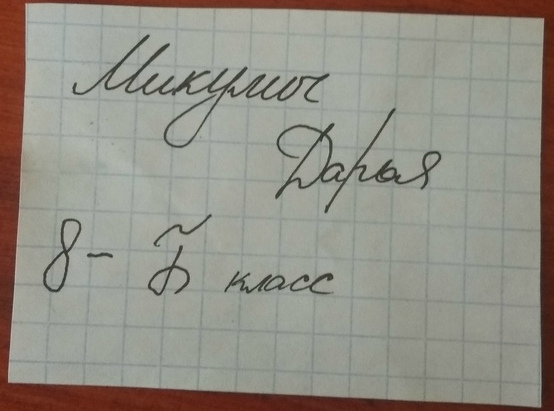 Микулич
Дарья
8-Б класс